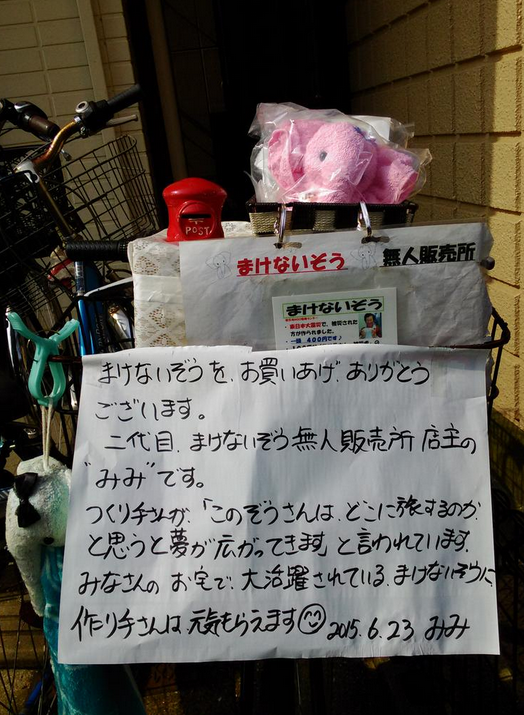 POST
まけないぞう 無人販売所
まけないぞう
・東日本大震災で、被災された
方が作られました。
・一頭 400円です♪
まけないぞうを、お買いあげ、ありがとう
ございます。
二代目、まけないぞう無人販売所 店主の
"みみ"です。
つくり手さんが、「このぞうさんは、どこに旅するのか
と思うと夢が広がってきます」と言われています。
みなさんの お宅で、大活躍されている、まけないぞうに
作り手さんは、元気もらえます☺ 2015.6.23 みみ